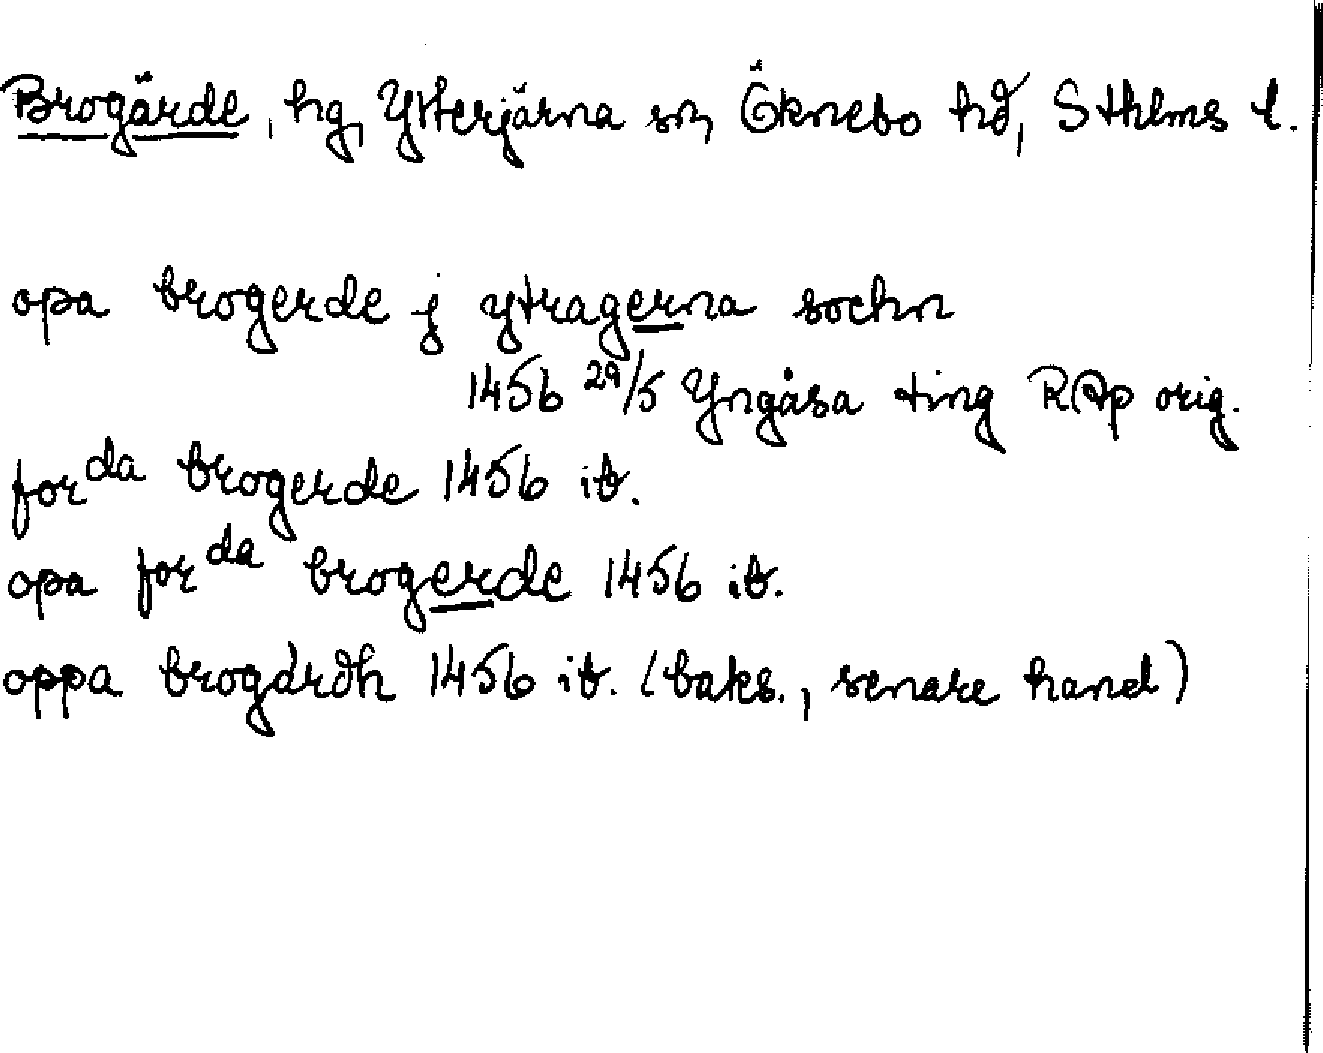 Brogärde, hg, Ytterjärna sn, Öknebo hd, Sthlms l.
opa brogerde j ytragerna sochn
1456 29/5 Yngåsa ting RAp orig.
for da brogerde 1456 ib.
opa for da brogerde 1456 ib.
oppa brogårdh 1456 ib. (baks., senare hand)